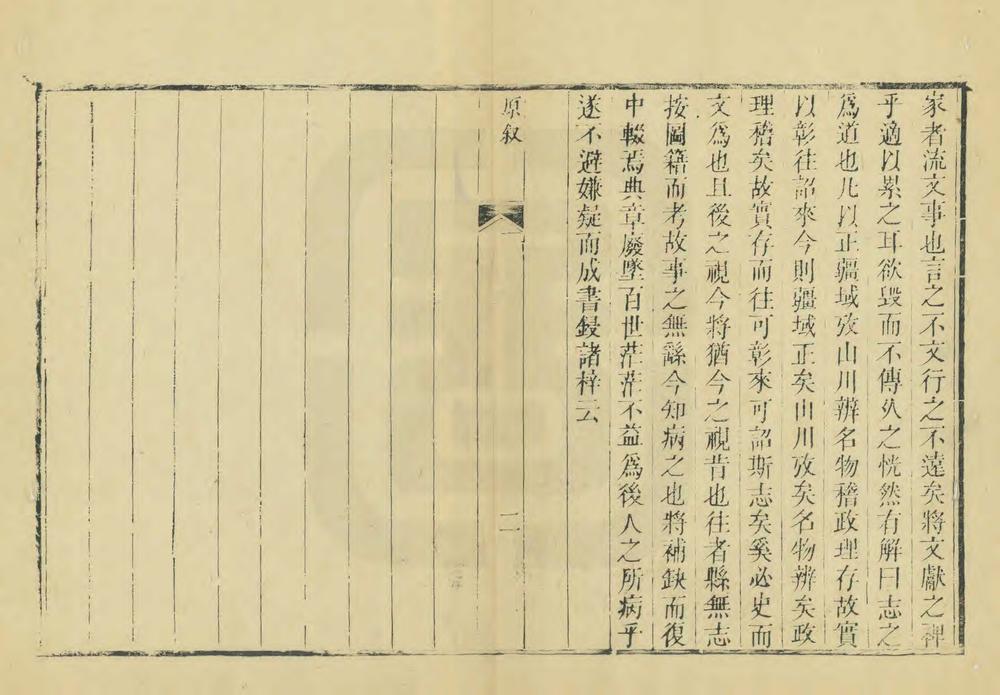 家者流文事也言之不文行之不遠矣將文獻之裨
乎適以累之耳欲毀而不傳久之恍然有解曰志之
爲道也凡以正疆域攷山川辨名物稽政理存故實
以彰往詔來今則疆域正矣山川攷矣名物辨矣政
理稽矣故實存而往可彰來可詔斯志矣奚必史而
文爲也且後之視今將猶今之視昔也往者縣無志
按圖籍而考故事之無繇今知病之也將補缺而復
中輟焉典章廢墜百世茫茫不益爲後人之所病乎
遂不避嫌疑而成書鋟諸梓云
原叙
二